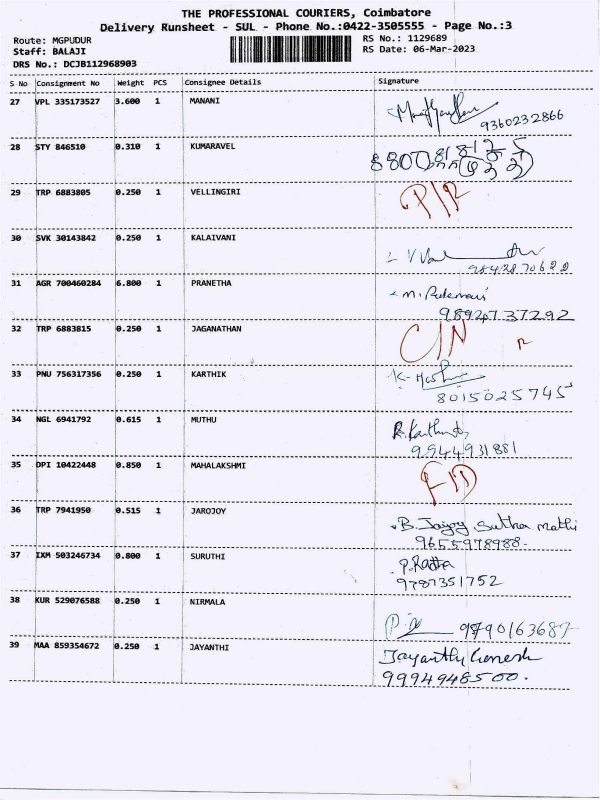 THE PROFESSIONAL COURIERS, Coimbatore
Delivery Runsheet - SUL - Phone No.:0422-3505555 - Page No.:3
Route: MGPUDUR
Staff: BALAJI
DRS No.: DCJB112968903
RS No.: 1129689
RS Date: 06-Mar-2023
S No Consignment No Weight PCS Consignee Details Signature
27 VPL 335173527 3.600 1 MANANI
9360232866
28 STY 846510 0.310 1 KUMARAVEL
29 TRP 6883805 0.250 1 VELLINGIRI
30 SVK 30143842 0.250 1 KALAIVANI
9842870622
31 AGR 700460284 6.800 1 PRANETHA
9894737292
32 TRP 6883815 0.250 1 JAGANATHAN
33 PNU 756317356 0.250 1 KARTHIK
8015025745
34 NGL 6941792 0.615 1 MUTHU
9944931881
35 DPI 10422448 0.850 1 MAHALAKSHMI
36 TRP 7941950 0.515 1 JAROJOY
B. Jayjoy Sutha mathi
9655978988.
37 IXM 503246734 0.800 1 SURUTHI
P. Radha
9787351752
38 KUR 529076588 0.250 1 NIRMALA
39 MAA 859354672 0.250 1 JAYANTHI
Jayanthy Ganesh
9994948500.